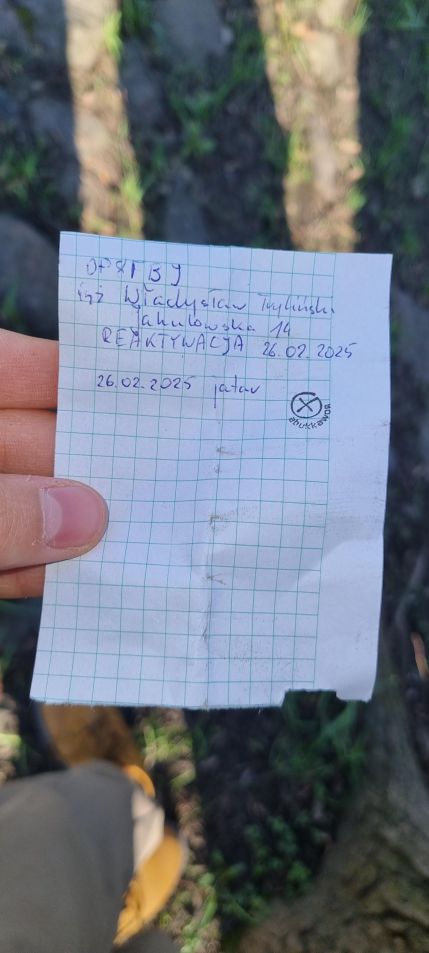 OPXFBJ
inż Władysław Tryliński
Jakubowska 14
REAKTYWACJA 26.02.2025
26.02.2025 jatav
abukkawor